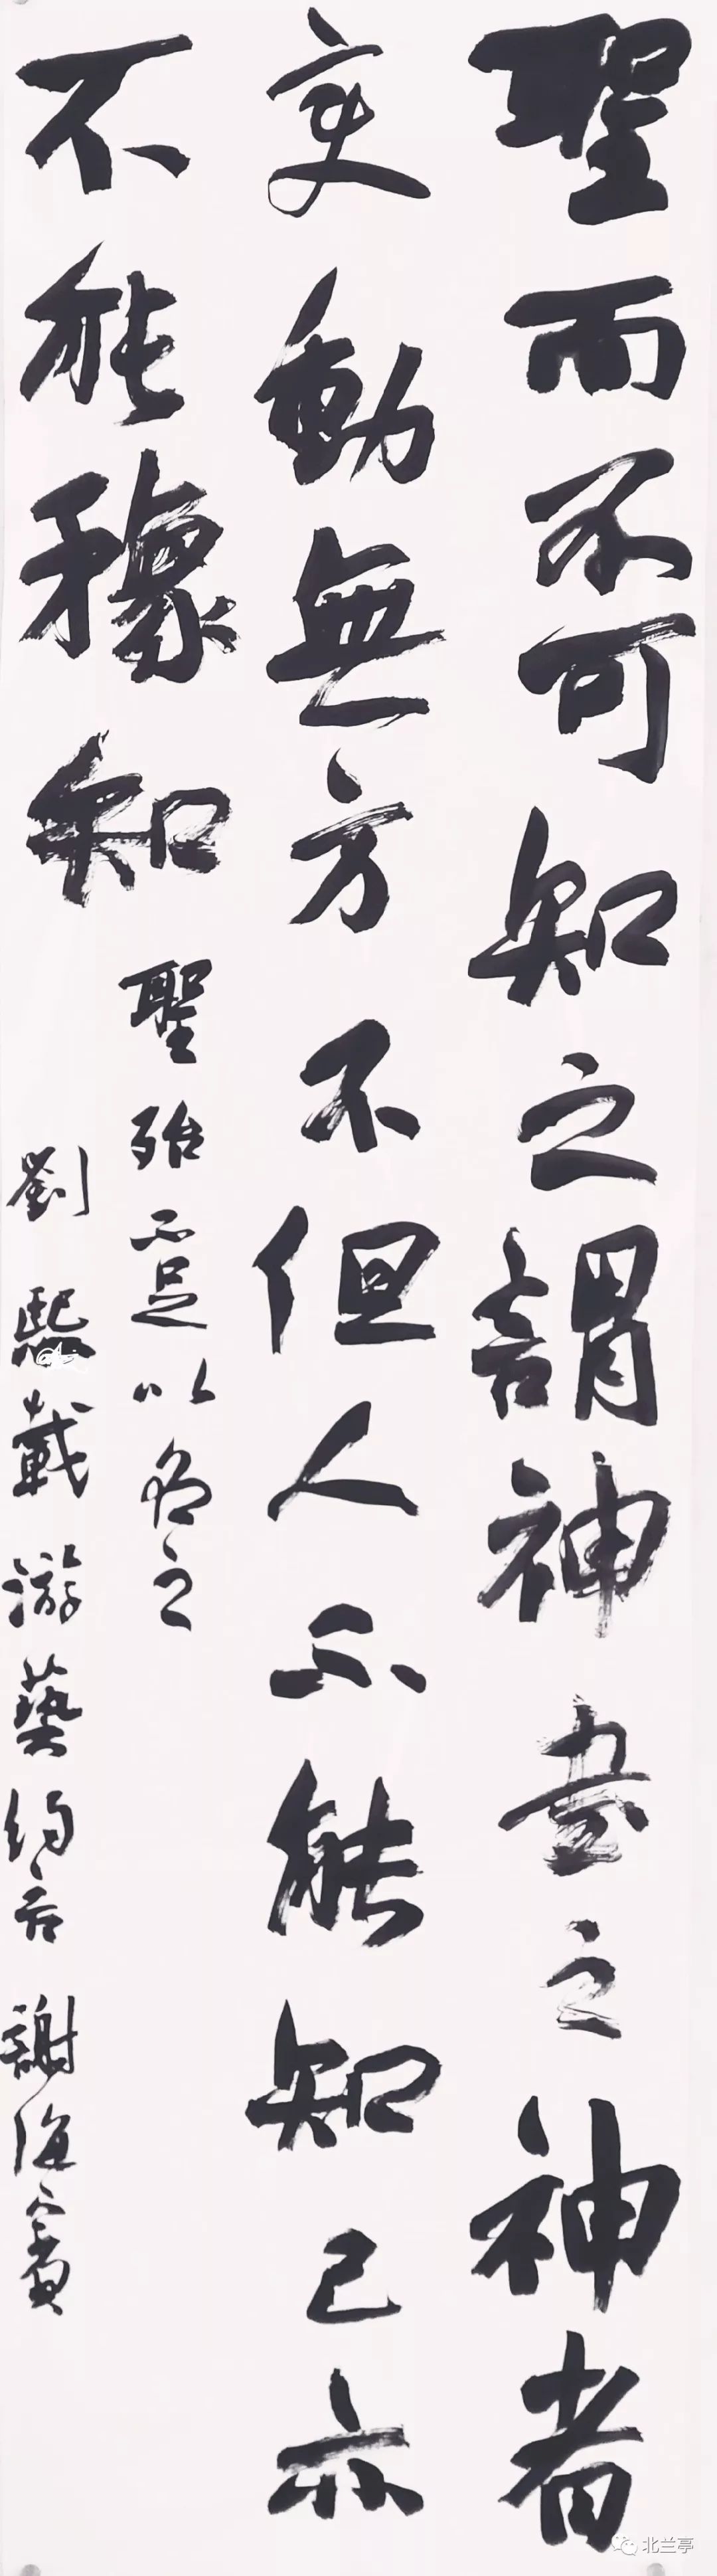 聖而不可知之謂神書之神者
変動無方不但人不能知己亦
不能豫知
聖殆不足以名之
劉熙載游藝約言 謝海賓
北兰亭